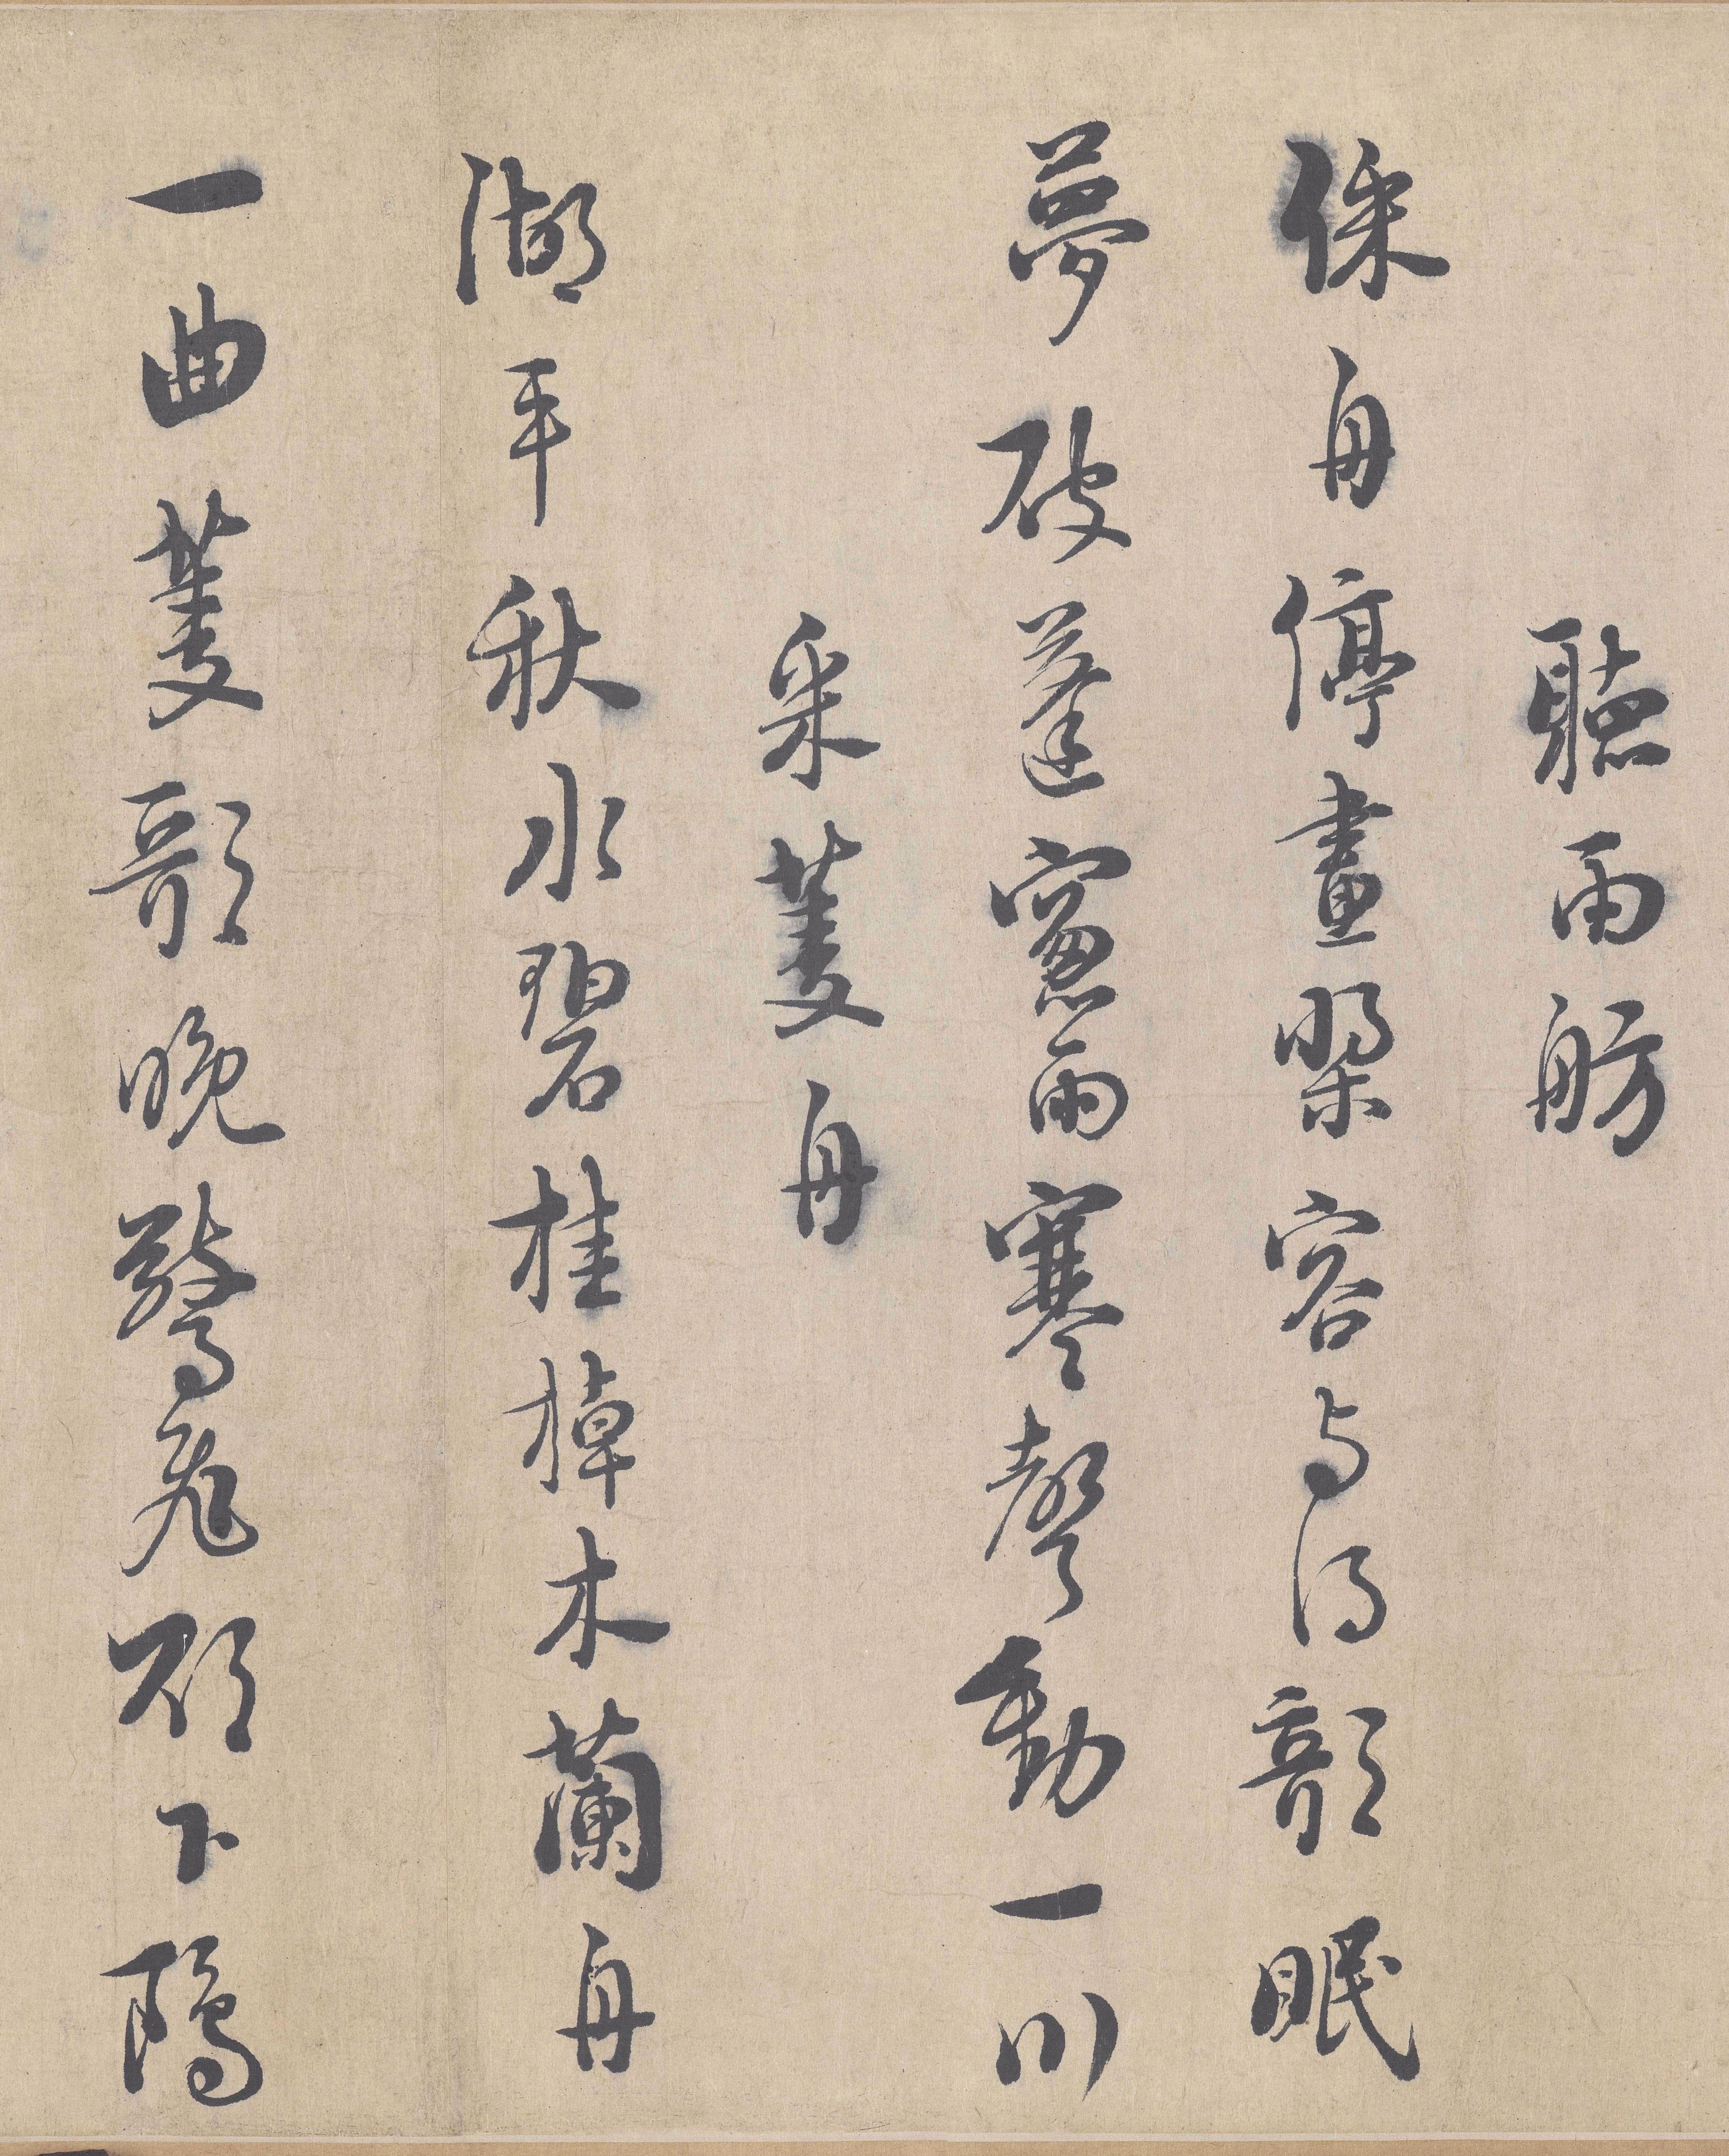 聽雨舫
綵舟停畫槳容与得欹眠
夢破蓬窻雨寒聲動一川
采菱舟
湖平秋水碧桂棹木蘭舟
一曲菱歌晚驚飛欲下鷗